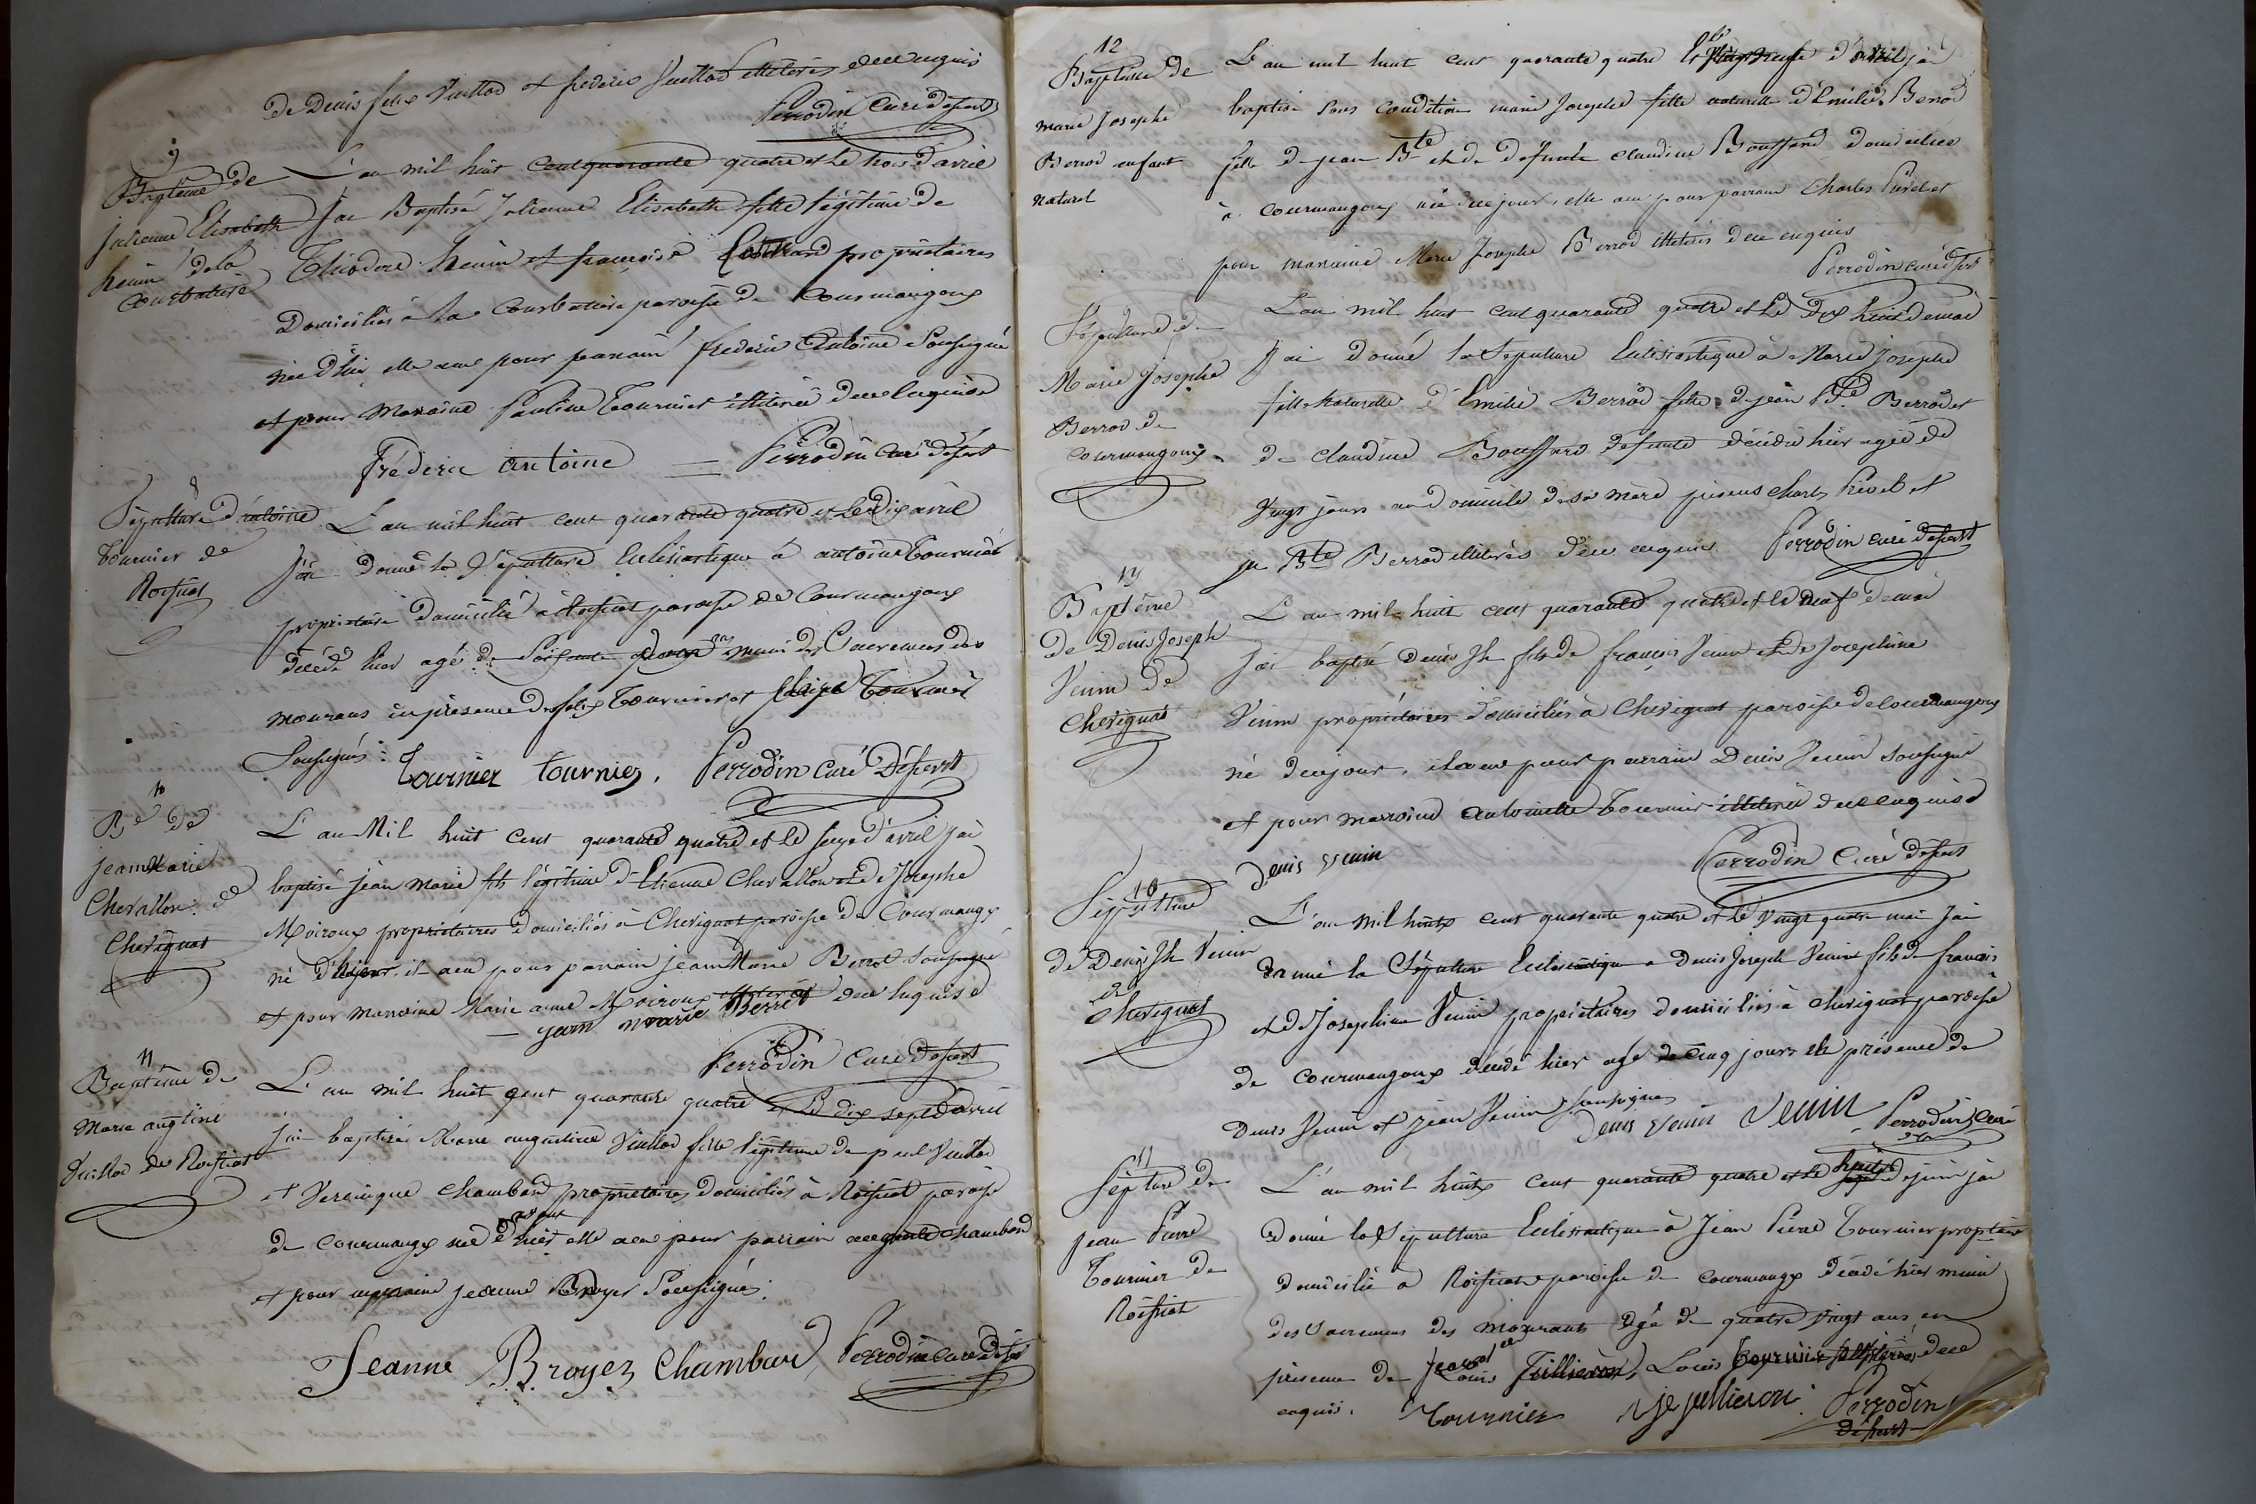 de Denis felix Vuillod et frederic Vuillod illiterés de ce enquis
Perrodin Curé desserv
9
Baptême de
julienne Elisabeth
henin de la
Courbatiere
L'an mil huit cent quarante quatre et le trois d'avril
J'ai Baptisé Julienne Elisabeth fille légitime de
Théodore henin et françoise propriétaires
Domiciliés à la Courbatiere paroisse de Courmangoux
née d'hier elle a eu pour parrain frederic Antoine Soussigné
et pour Maraine Pauline Tournier illiterée de ce enquise
Fréderic antoine Perrodin curé desserv
8
Sépulture d'antoine
Tournier de
Roissiat
L'an mil huit cent quarante quatre et le dix avril
J'ai donné la Sépulture Eclésiastique à antoine Tournier
propriétaire domicilié à Roissiat paroisse de Courmangoux
décédé hier agé de Soixante ans muni des Sacremens des
mourans en présence de felix Tournier et Tournier
Soussignés :
Tournier tournier. Perrodin curé Desservt
10
Bme de
jean Marie
Chevallon de
Chevignat
L'an Mil huit cent quarante quatre et le seize d'avril j'ai
baptisé jean Marie fils légitime d'Etienne Chevallon et de Josephe
Moiroux propriétaires domiciliés à Chevignat paroisse de Courmangx
né il a eu pour parrain jean Marie Berrod Soussigné
et pour Maraine Marie anne Moiroux illiterée de ce enquise
jean marie Berrod
Perrodin Curé desservt
11
Baptême de
Marie augtine
Vuillod de Roissiat
L'an mil huit cent quarante quatre et le dix sept d'avril
j'ai baptisé Marie augustine Vuillod fille légitime de paul Vuillod
et Veronique Chambard propriétaires domiciliés à Roissiat paroisse
de Courmangx née avant hier elle a eu pour parrain auguste Chambard
et pour maraine jeanne Broyer Soussignés.
Jeanne Broyez Chambard Perrodin curé desst
12
Baptême de
marie Josephe
Berrod enfant
naturel
L'an mil huit cent quarante quatre le d'avril j'ai
baptisé sous condition marie Josephe fille naturelle d'Emilie Berrod
fille de jean Bte et de defunte claudine Bouffard domiciliée
à Courmangoux née de ce jour, elle a eu pour parrain Charles Pivel et
pour maraine Marie Josephe Berrod illiterés de ce enquis
Perrodin curé dess
Sépulture de
Marie Josephe
Berrod de
Courmangoux
L'an mil huit cent quarante quatre et le dix huit de mai
J'ai donné la Sepulture Eclésiastique à Marie josephe
fille Naturelle d'Emilie Berrod fille de jean Bte Berrod et
de claudine Bouffard défunte décédée hier agée de
vingt jours au domicile de sa mère présens charles Pivel et
jn Bte Berrod illiterés de ce enquis Perrodin curé desservt
13
Baptême
de Denis Joseph
Venin de
Chevignat
L'an mil huit cent quarante quatre et le neuf de mai
J'ai baptisé Denis Jh fils de françois Venin et de Josephine
Venin propriétaires domiciliés à Chevignat paroisse de Courmangoux
né de ce jour, il a eu pour parrain Denis Venin Soussigné
et pour marraine Antoinette Tournier illiterée de ce enquise
denis venin Perrodin curé desservt
10
Sépulture
de Denis Jh Venin
de
Chevignat
L'an mil huit cent quarante quatre et le vingt quatre mai j'ai
donné la Sépulture Eclésiastique a Denis Joseph Venin fils de françois
et de Josephine Venin propriétaires domiciliés à chevignat paroisse
de Courmangoux décédé hier agé de cinq jours en présence de
Denis Venin et jean Venin Soussignés
Denis Venin Venin Perrodin, curé
11
Sépture de
Jean Pierre
Tournier de
Roissiat
L'an mil huit cent quarante quatre et le huit de juin j'ai
donné la Sépulture Eclésiastique à Jean Pierre Tournier proptaire
domicilié à Roissiat paroisse de Courmangx décédé hier muni
des Sacremens des Mourants agé de quatre vingt ans en
présence de Louis Tournier de ce
enquis. Tournier Perrodin
desservt